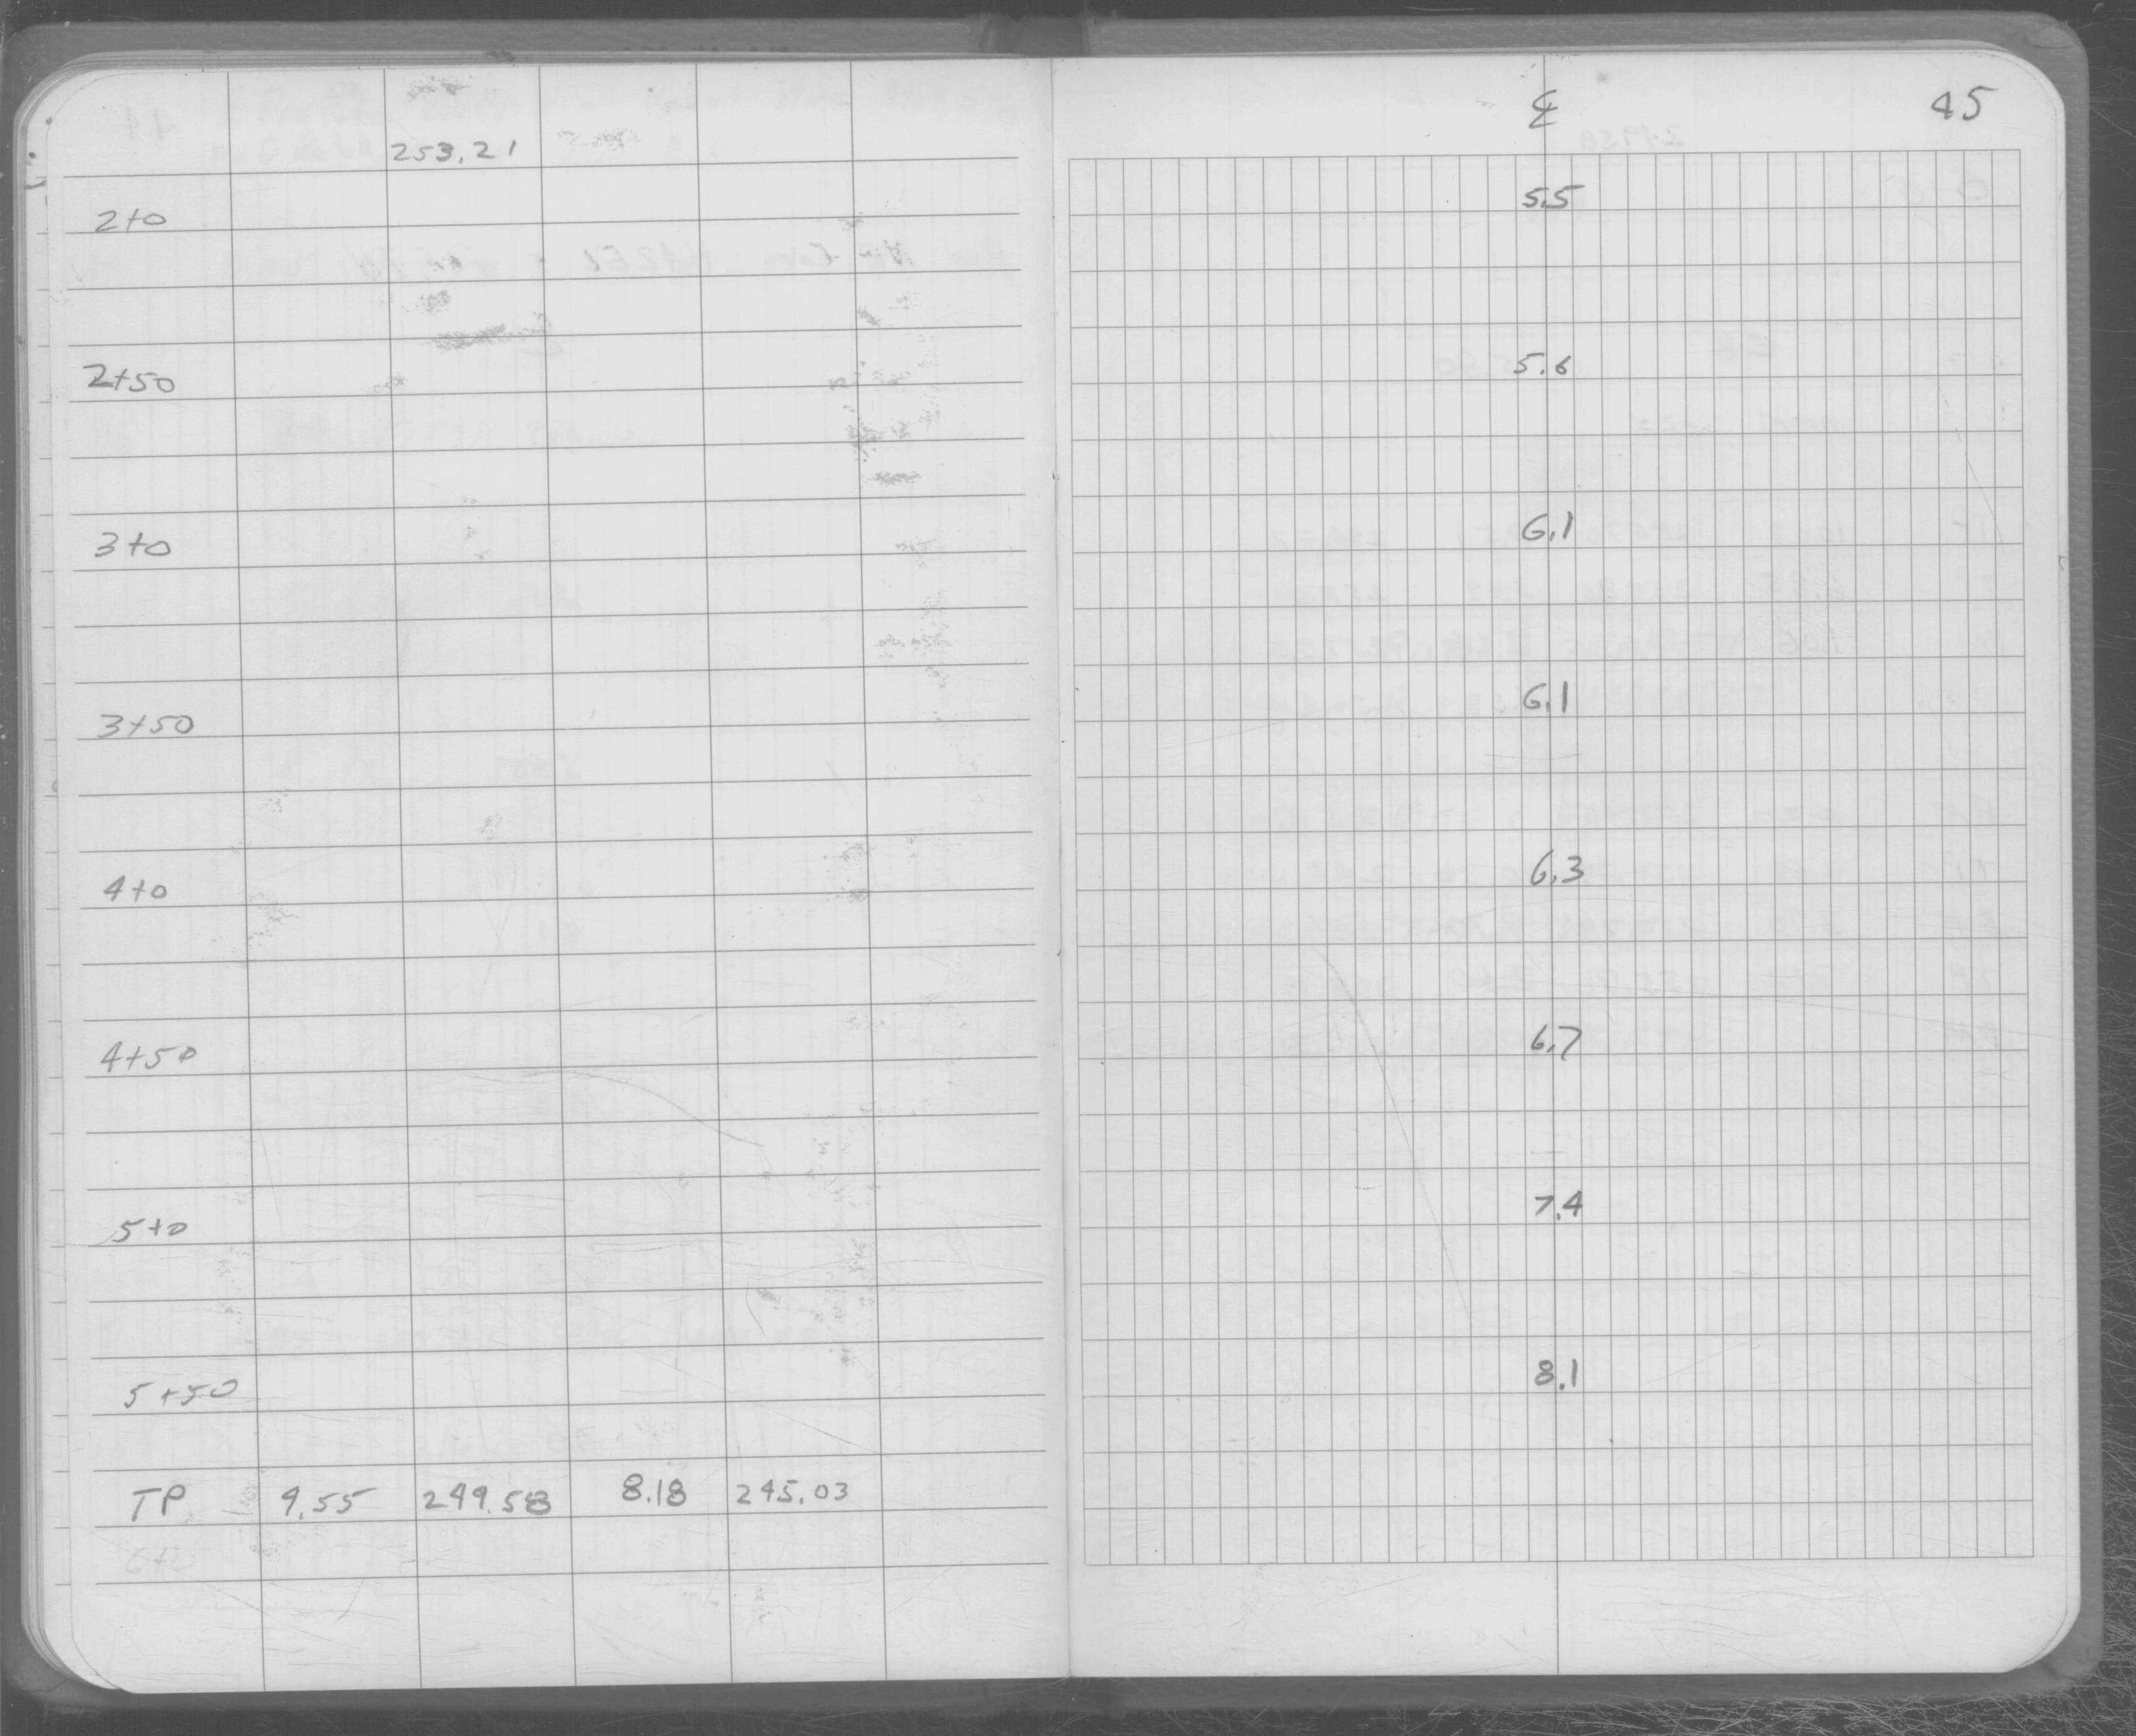 ℄ 45
253.21
2+0 5.5
2+50 5.6
3+0 6.1
3+50 6.1
4+0 6.3
4+50 6.7
5+0 7.4
5+50 8.1
TP 4.55 249.58 8.18 245.03